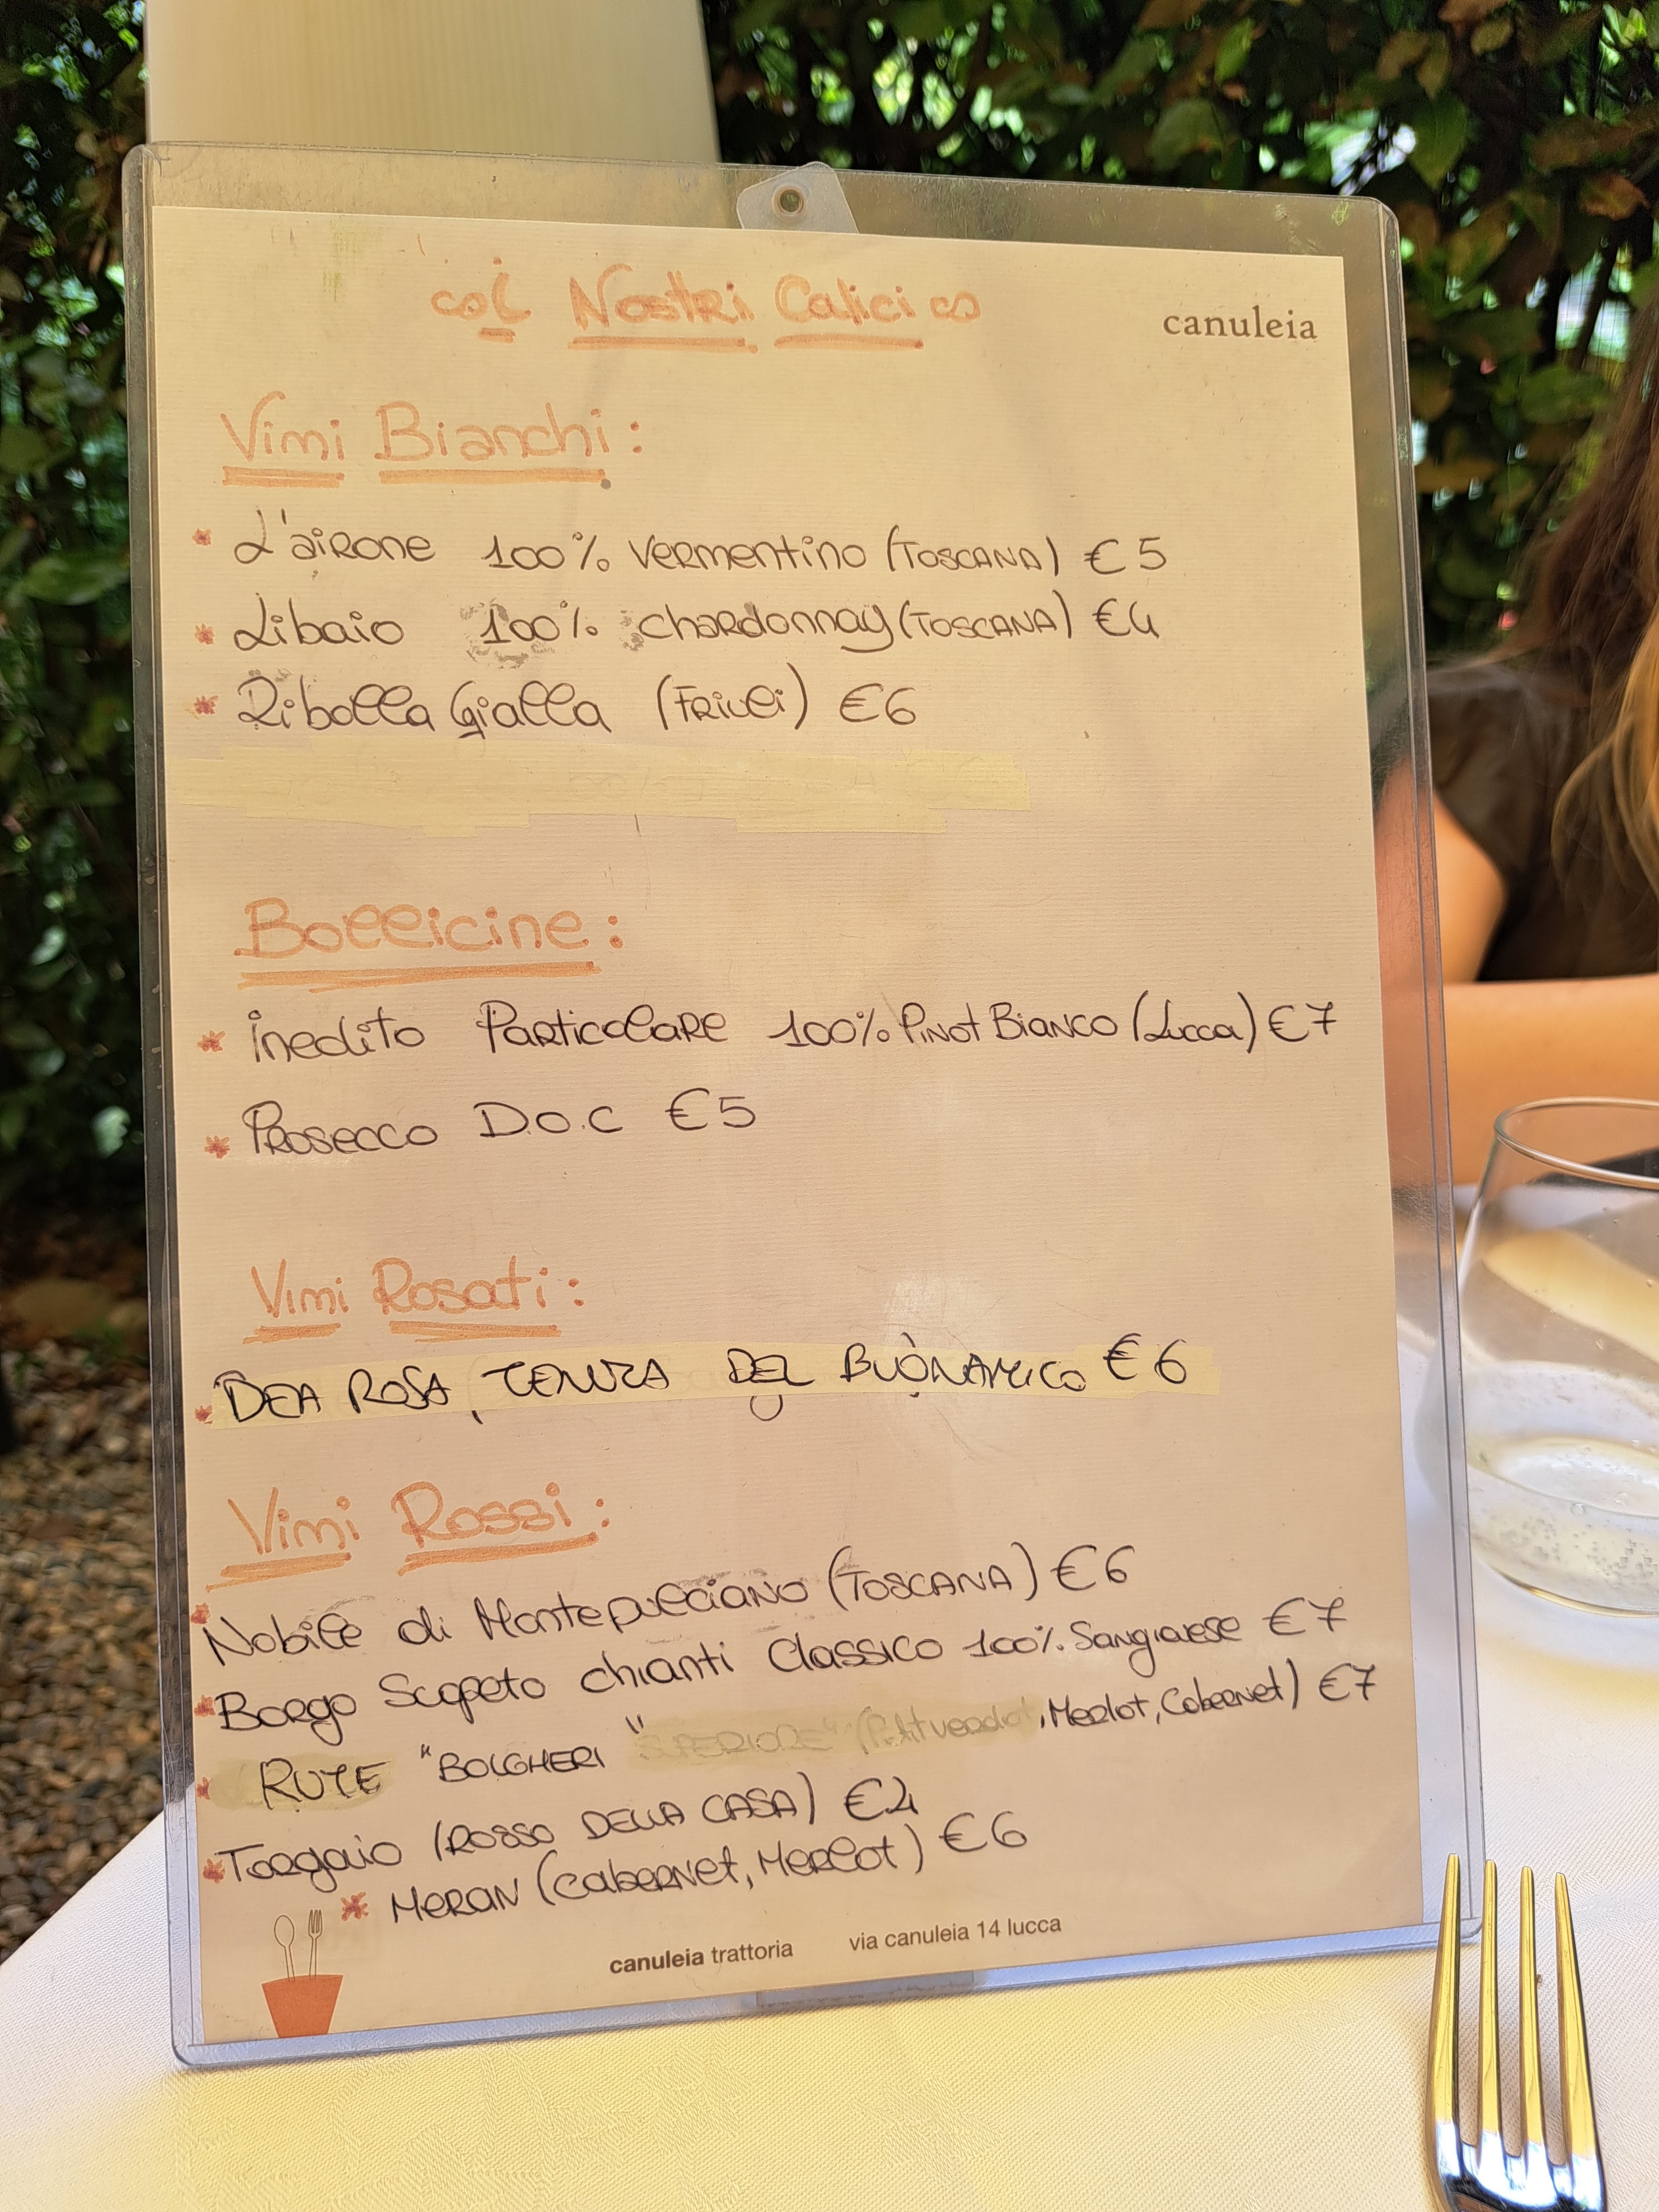 I Nostri Calici
canuleia
Vini Bianchi:
L'airone 100% Vermentino (TOSCANA) €5
Libaio 100% chardonnay (TOSCANA) €4
Ribolla Gialla (Friuli) €6
Bollicine:
inedito Particolare 100% Pinot Bianco (Lucca) €7
Prosecco D.O.C €5
Vini Rosati:
DEA ROSA, TENUTA DEL BUONAMICO €6
Vini Rossi:
Nobile di Montepulciano (TOSCANA) €6
Borgo Scopeto chianti Classico 100% Sangiovese €7
RUTE "BOLGHERI "SUPERIORE" (Petit verdot, Merlot, Cabernet) €7
Torgaio (ROSSO DELLA CASA) €4
MERAN (Cabernet, Merlot) €6
canuleia trattoria via canuleia 14 lucca